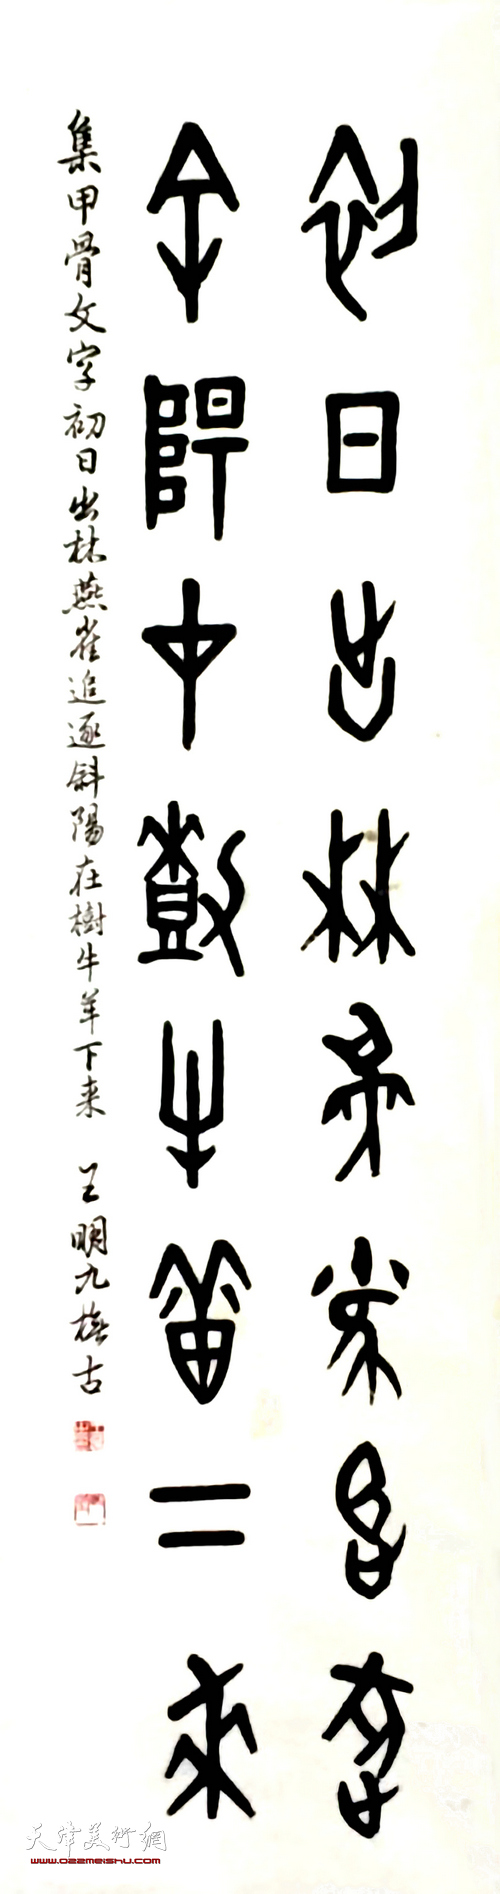 初日出林燕雀追逐
斜陽在樹牛羊下来
集甲骨文字初日出林燕雀追逐斜陽在樹牛羊下来 王明九橅古
天津美術網
www.022meishu.com